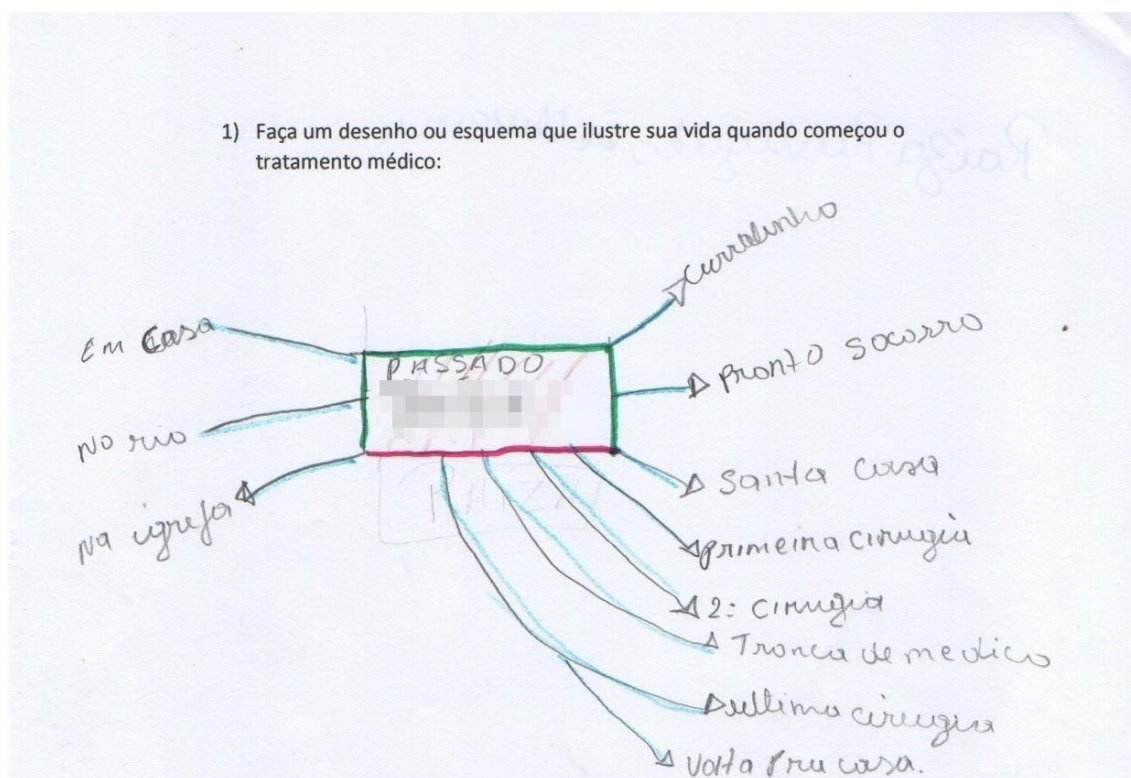 1) Faça um desenho ou esquema que ilustre sua vida quando começou o
tratamento médico:
PASSADO
Em Casa
no rio
na igreja
Curralinho
Pronto Socorro
Santa Casa
Primeira cirugia
2: cirugia
Tronca de medico
ultima cirugia
Volta Pra casa.